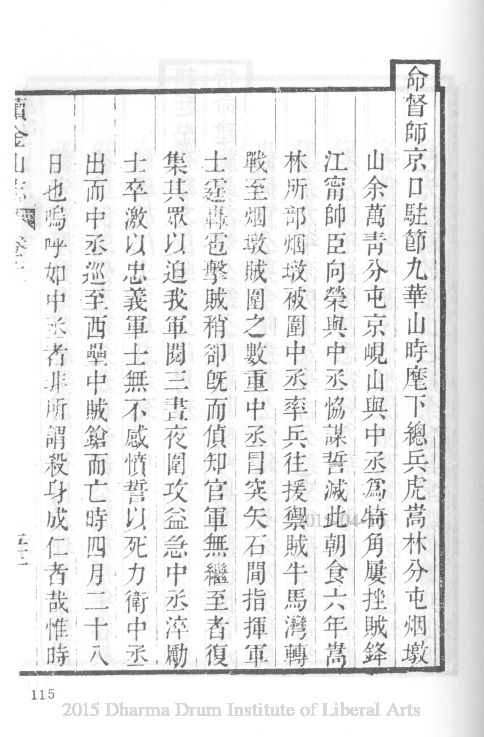 命督師京口駐節九華山時麾下總兵虎嵩林分屯烟墩
山余萬青分屯京峴山與中丞爲犄角屢挫賊鋒
江甯帥臣向榮與中丞恊謀誓滅此朝食六年嵩
林所部烟墩被圍中丞率兵往援禦賊牛馬灣轉
戰至烟墩賊圍之數重中丞冒突矢石間指揮軍
士霆轟雹擊賊稍卻旣而偵知官軍無繼至者復
集其眾以迫我軍閱三晝夜圍攻益急中丞淬勵
士卒激以忠義軍士無不感憤誓以死力衛中丞
出而中丞巡至西壘中賊鎗而亡時四月二十八
日也嗚呼如中丞者非所謂殺身成仁者哉惟時
續金山志
115
2015 Dharma Drum Institute of Liberal Arts